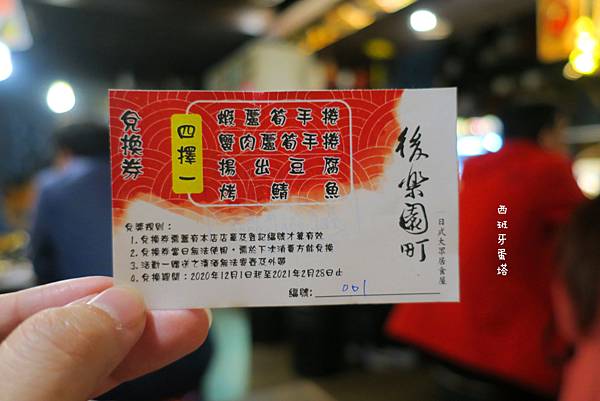 兌換券
四擇一
蝦蘆筍手捲
蟹肉蘆筍手捲
揚出豆腐
烤鯖魚
後樂園町
日式大眾居食屋
兌獎規則：
1. 兌換券需蓋有本店店章及登記編號才算有效
2. 兌換券當日無法使用，需於下次消費方能兌換
3. 活動一經送之
4. 兌換期間：2020年12月1日起至2021年2月28日止
編號：001
西班牙蛋塔